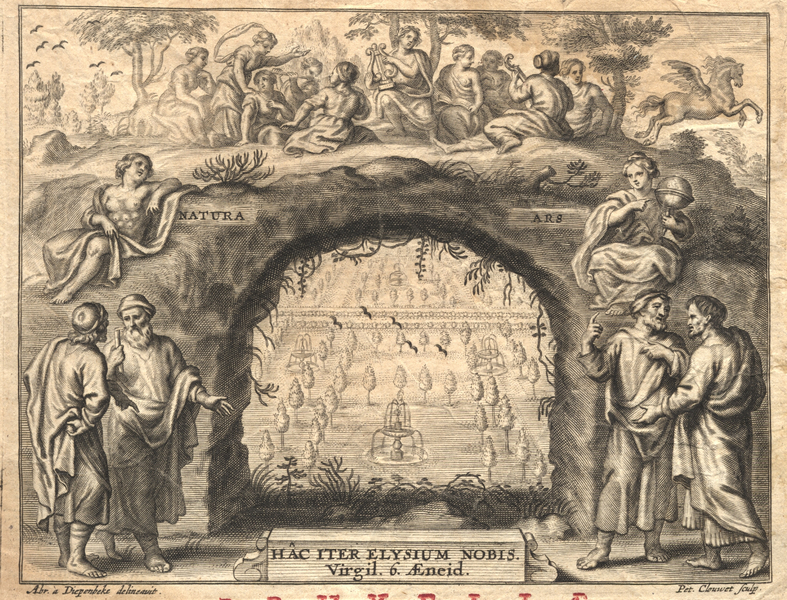 NATURA
ARS
HÂC ITER ELYSIUM NOBIS.
Virgil. 6. Æneid.
Abr. a Diepenbeke delineavit.
Pet. Clouwet sculp.